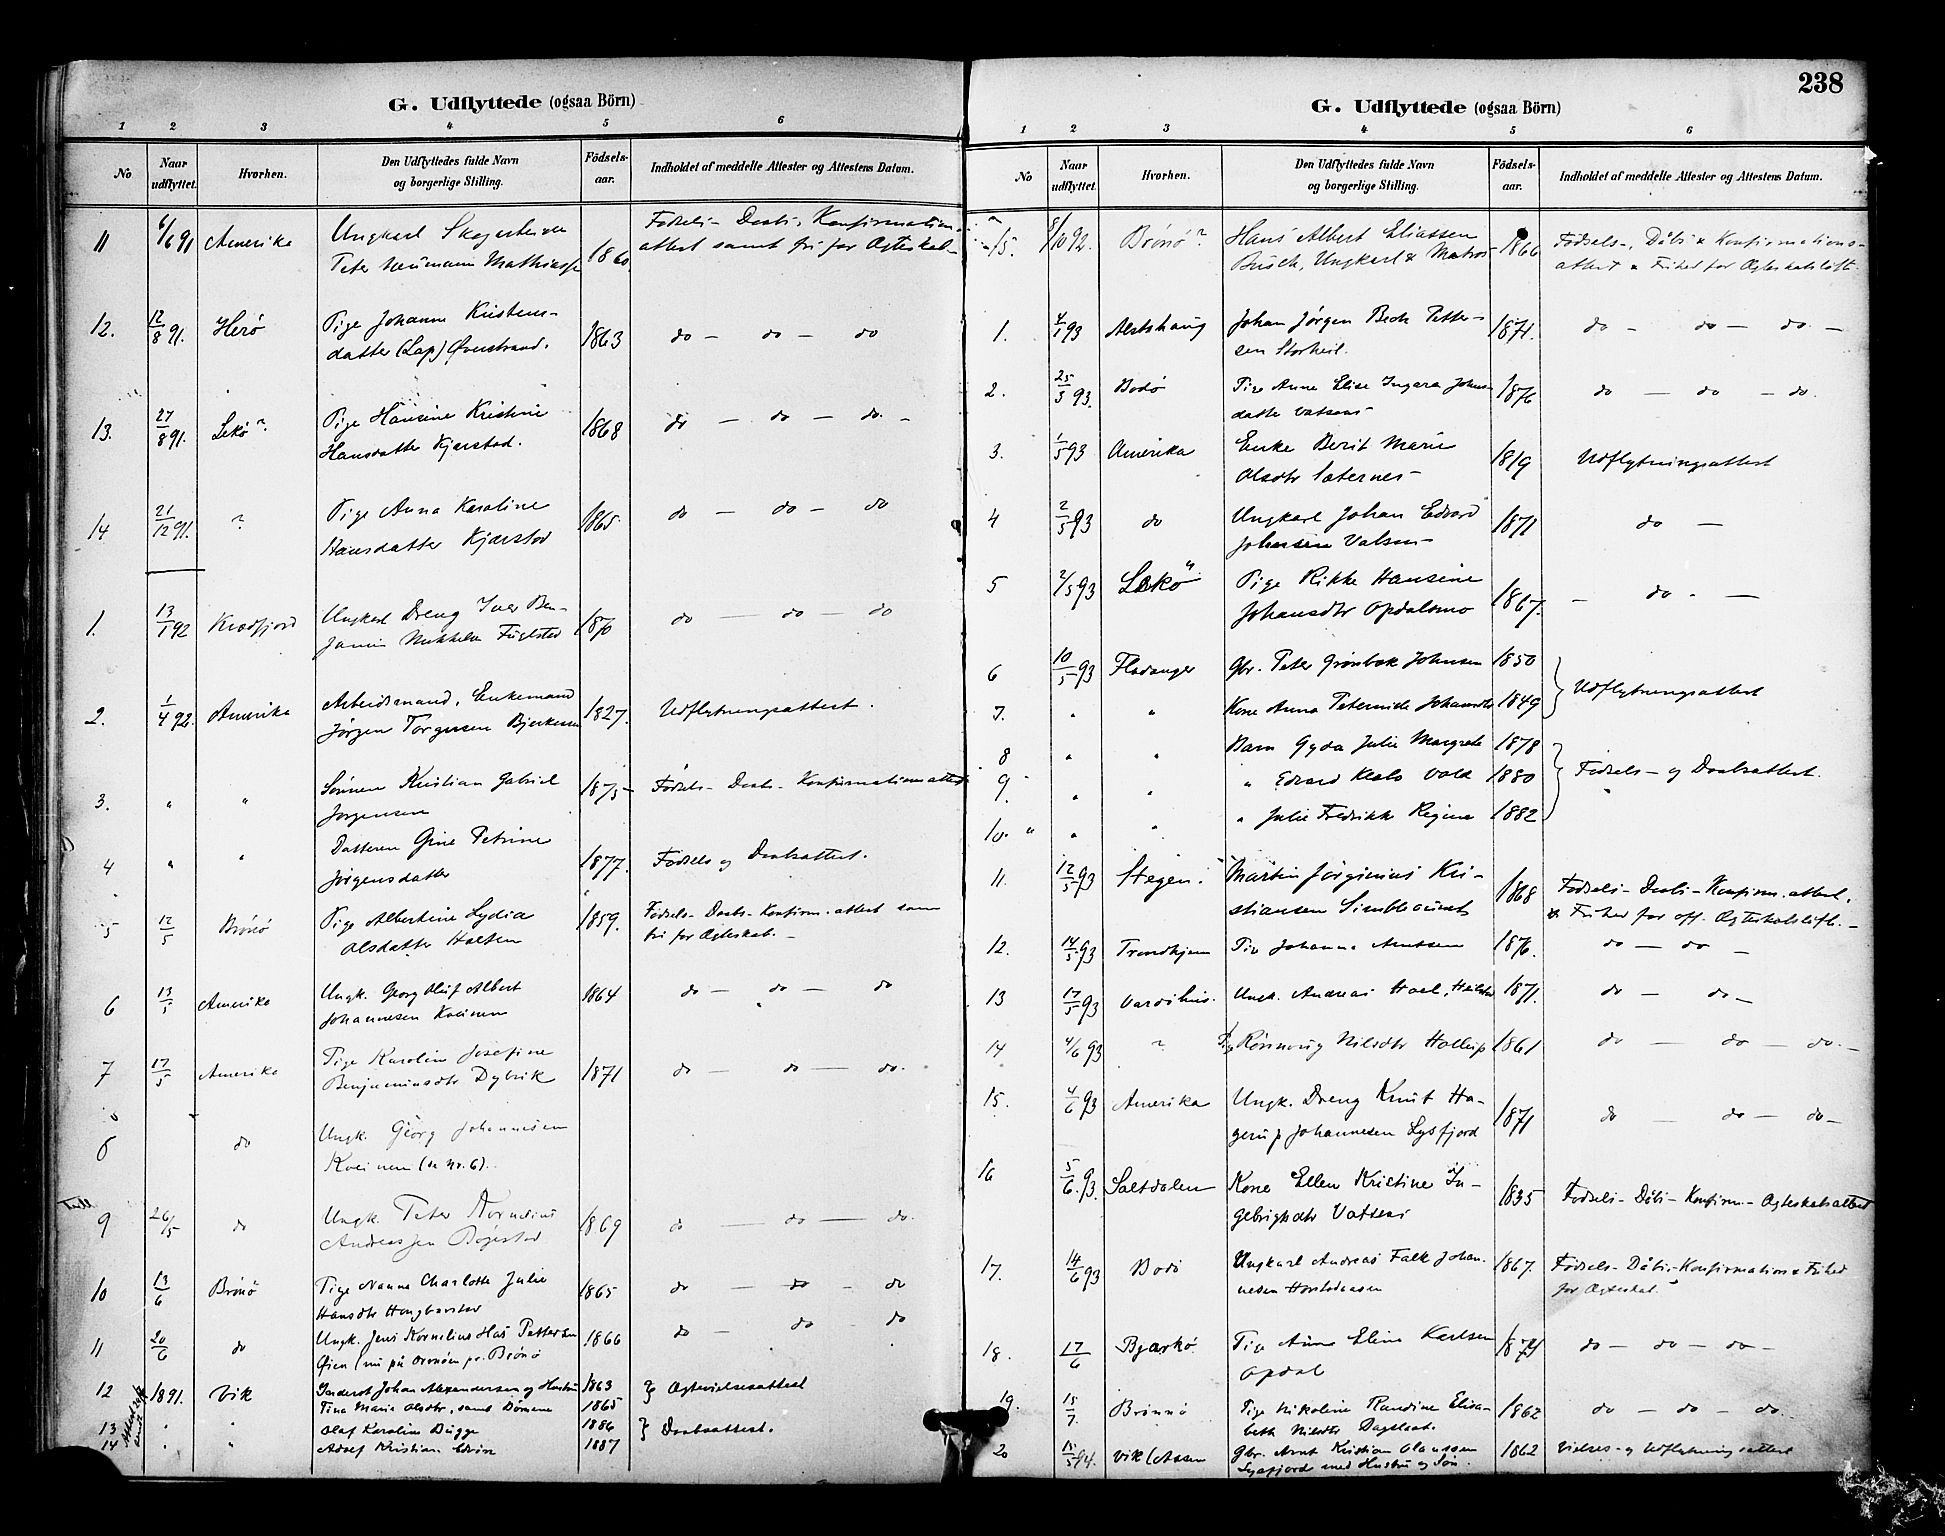 238
G. Udflyttede (ogsaa Börn)
1 2 3 4 5 6
No Naar udflyttet. Hvorhen. Den Udflyttedes fulde Navn og borgerlige Stilling. Födselsaar. Indholdet af meddelte Attester og Attestens Datum.
11 6/6 91 Amerika Ungkarl 1860 Fødsels- Daabs- Konfirmations-
Peter Neumann Mathiassen attest samt fri for Ægteskab
12. 12/8 91. Herø Pige Johanna Kristens- 1863 do — do — do
datter (Lap) Øverstrand.
13. 27/8 91. Lekø? Pige Hansine Kristine 1868 do — do — do —
Hansdatter Kjærstad.
14 21/12 91. ? Pige Anna Karoline 1865 do — do — do
Hansdatter Kjærstad
1. 13/1 92 Ungkarl Dreng Iver Ben- 1870 do — do — do
jamin
2. 1/4 92. Amerika Arbeidsmand, Enkemand 1827. Udflytningsattest.
Jørgen Torgersen
3. " " Sønnen Kristian Gabriel 1875 Fødsels- Daabs- Konfirmationsattest
Jørgensen
4 " " Datteren Gine Petrine 1877. Fødsels og Daabsattest.
Jørgensdatter
5 12/5 Brønø Pige Albertine Lydia 1859. Fødsels- Daabs- Konfirm. attest samt
Olsdatter Holten fri for Ægteskab. —
6 13/5 Amerika Ungk. Georg Oluf Albert 1864 do — do — do
Johannesen
7 17/5 Amerika Pige Karolin Josefine 1871 do — do — do.
Benjaminsdtr Dybvik
8 do Ungk. Georg Johannesen
(se Nr. 6).
9 26/5 do Ungk. Peter Kornelius 1869 do — do — do.
Andreassen Bøgestad
10 13/6 Brönö Pige Nanna Charlotte Julie 1865 do — do — do
Hansdtr
11 20/6 do Ungk. Jens Kornelius Hag Pettersen 1866 do — do do
Øien (nu på pr. Brönö
12 1891. Vik Inderst Johan Alexandersen og Hustru 1863 } Ægtevielsesattest
Tina Marie Olsdtr, samt Børnene 1865
13 " " Olaf Karolius Bugge 1886 } Daabsattest.
14 " " Adolf Kristian 1887
G. Udflyttede (ogsaa Börn)
1 2 3 4 5 6
No Naar udflyttet. Hvorhen. Den Udflyttedes fulde Navn og borgerlige Stilling. Födselsaar. Indholdet af meddelte Attester og Attestens Datum.
15. 8/10 92. Brönö? Hans Albert Eliassen 1866 Fødsels-, Dåbs & Konfirmations-
Busch, Ungkarl & Matros attest & Frihed for Ægteskabsløfte.
1. 4/1 93 Alstahaug Johan Jørgen Beck Petter- 1871. do — do — do. —
sen Storheil.
2. 25/3 93. Bodø Pige Anna Elise Ingara Johns- 1876 do — do — do.
datter Vatsens
3. 1/5 93 Amerika Enke Berit Marie 1819 Udflytningsattest
Olsdtr Sæternes
4 2/5 93 do Ungkarl Johan Edvard 1871 do —
Johansen
5 2/5 93 Lekö Pige Rikke Hansine 1867. — do. —
Johansdtr Opdalsmo
6 10/5 93 Fladanger Gbr. Peter Grønbek Johnsen 1850 } Udflytningsattest
7. " " Kone Anna Peternille Johansdtr 1849
8 " " Barn Gyda Julie Margrete 1878 } Fødsels- og Daabsattest.
9. " " " Edvard 1880
10 " " " " Julie Fredrikke Regine 1882
11. 12/5 93 Stegen. Martin Jørginius Kri- 1868 Fødsels- Daabs- Konfirm. attest,
stiansen & Frihed for off. Ægteskabsløfte. —
12. 14/5 93 Trondhjem Pige Johanna Arntsen 1876. do — do —
13 17/5 93 Ungk. Andreas 1871. do — do —
14 4/6 93 ? Pige Rönnaug Nilsdtr 1861 do — do — do —
15. 4/6 93 Amerika Ungk. Dreng Knut Ha- 1871 do — do — do —
gerup Johannesen Lysfjord
16 5/6 93. Saltdalen Kone Ellen Kristine In- 1835 Fødsels- Dåbs- Konfirm- Ægteskabsattest
gebrigtsdtr Vatsens
17. 14/6 93 Bodö Ungkarl Andreas Falk Johan- 1867. Fødsels- Dåbs- Konfirmation & Frihed
nesen for Ægteskab.
18. 17/6 Bjarkø. Pige Anna Eline Karlsen 1874 do — do — do —
Opdal
19. 15/7. Brönnö Pige Nikoline Randine Elisa- 1862 do — do — do.
beth Nilsdtr Dagslaat.
20 15/5 94. Vik Gbr. Arnt Kristian Olaussen 1862 Vielses- og Udflytningsattest
Lysfjord med Hustru og Søn.